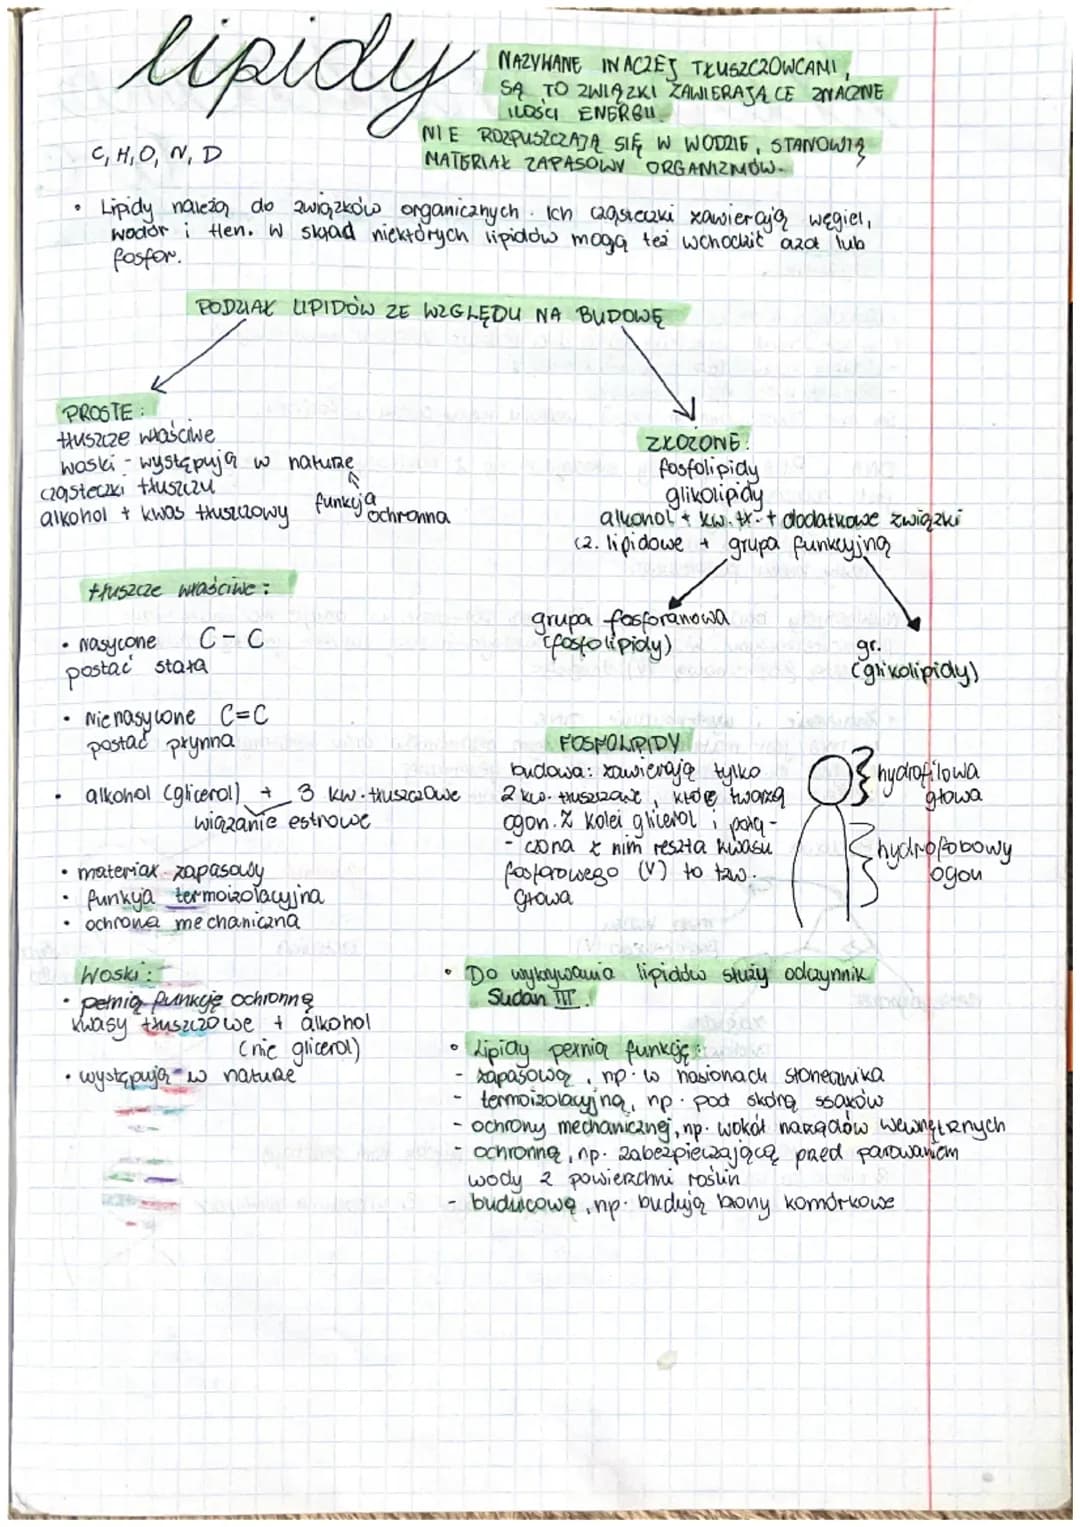 lipidy
NAZYWANE INACZEJ TŁUSZCZOWCAMI,
SĄ TO ZWIĄZKI ZAWIERAJĄCE ZNACZNE
ILOŚCI ENERGII.
NIE ROZPUSZCZAJĄ SIĘ W WODZIE, STANOWIĄ
MATERIAŁ ZAPASOWY ORGANIZMÓW.
C, H, O, N, D
• Lipidy należą do związków organicznych. Ich cząsteczki zawierają węgiel,
wodór i tlen. W skład niektórych lipidów mogą też wchodzić azot lub
fosfor.
PODZIAŁ LIPIDÓW ZE WZGLĘDU NA BUDOWĘ
PROSTE:
tłuszcze właściwe
woski - występują w naturze
funkcja ochronna
cząsteczki tłuszczu
alkohol + kwas tłuszczowy
ZŁOŻONE:
fosfolipidy
glikolipidy
alkohol + kw. tł. + dodatkowe związki
cz. lipidowe + grupa funkcyjną
grupa fosforanowa
(fosfolipidy)
gr.
(glikolipidy)
tłuszcze właściwe:
• nasycone C-C
postać stała
• Nienasycone C=C
postać płynna
• alkohol (glicerol) + 3 kw. tłuszczowe
wiązanie estrowe
• materiał zapasowy
• funkcja termoizolacyjna
• ochrona mechaniczna
FOSFOLIPIDY
budowa: zawierają tylko
2 kw. tłuszczowe, które tworzą
ogon. Z kolei glicerol i połą-
- czona z nim reszta kwasu
fosforowego (V) to tzw.
głowa
hydrofilowa
głowa
hydrofobowy
ogon
Woski:
• pełnią funkcję ochronną
kwasy tłuszczowe + alkohol
(nie glicerol)
• występują w naturze
• Do wykrywania lipidów służy odczynnik
Sudan III.
• Lipidy pełnią funkcję:
- zapasową, np. w nasionach słonecznika
- termoizolacyjną, np. pod skórą ssaków
- ochrony mechanicznej, np. wokół narządów wewnętrznych
- ochronną, np. zabezpieczającą przed parowaniem
wody z powierzchni roślin
- budulcową, np. budują błony komórkowe